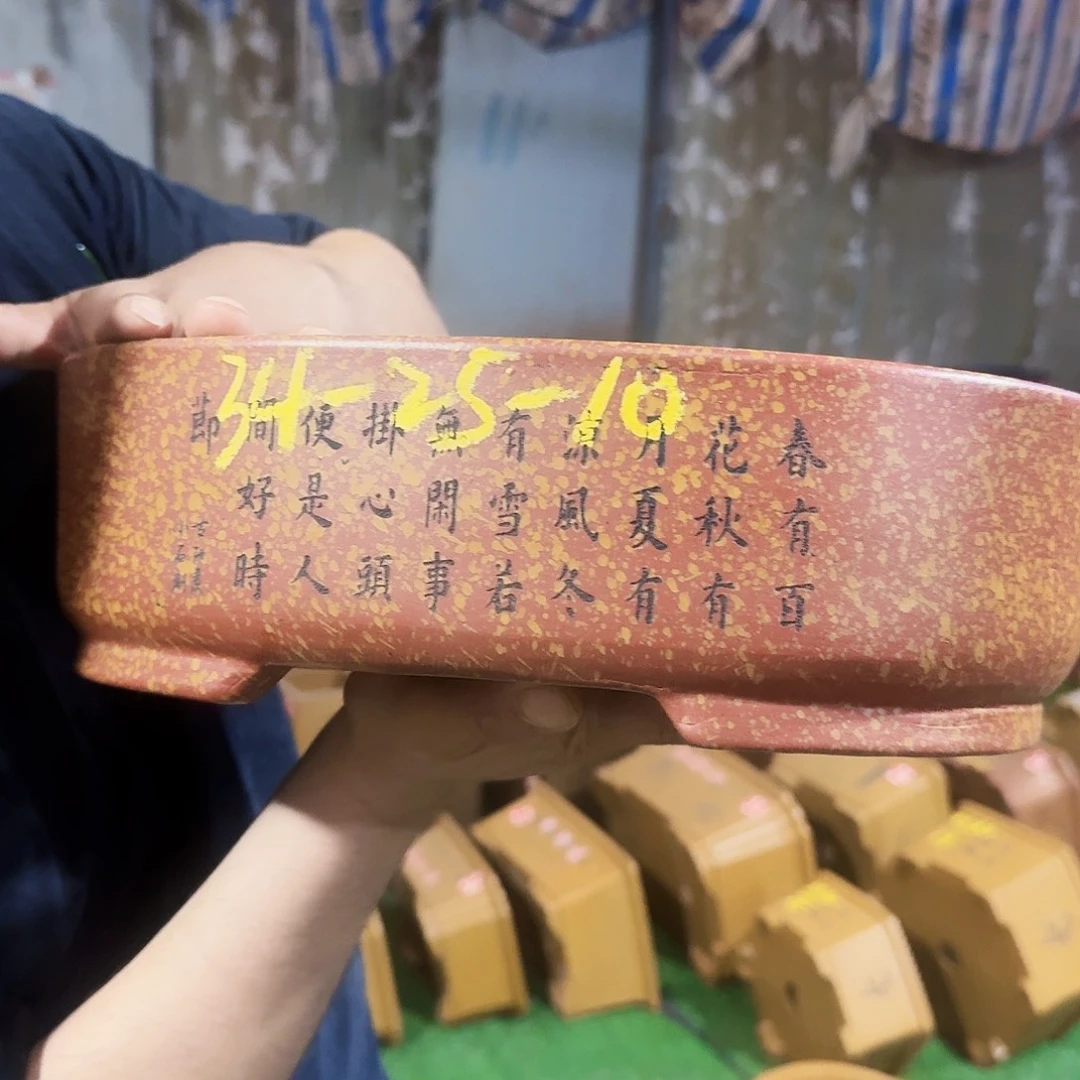 34-25-10
春有百
花秋有
月夏有
涼風冬
有雪若
無閑事
掛心頭
便是人
間好時
節